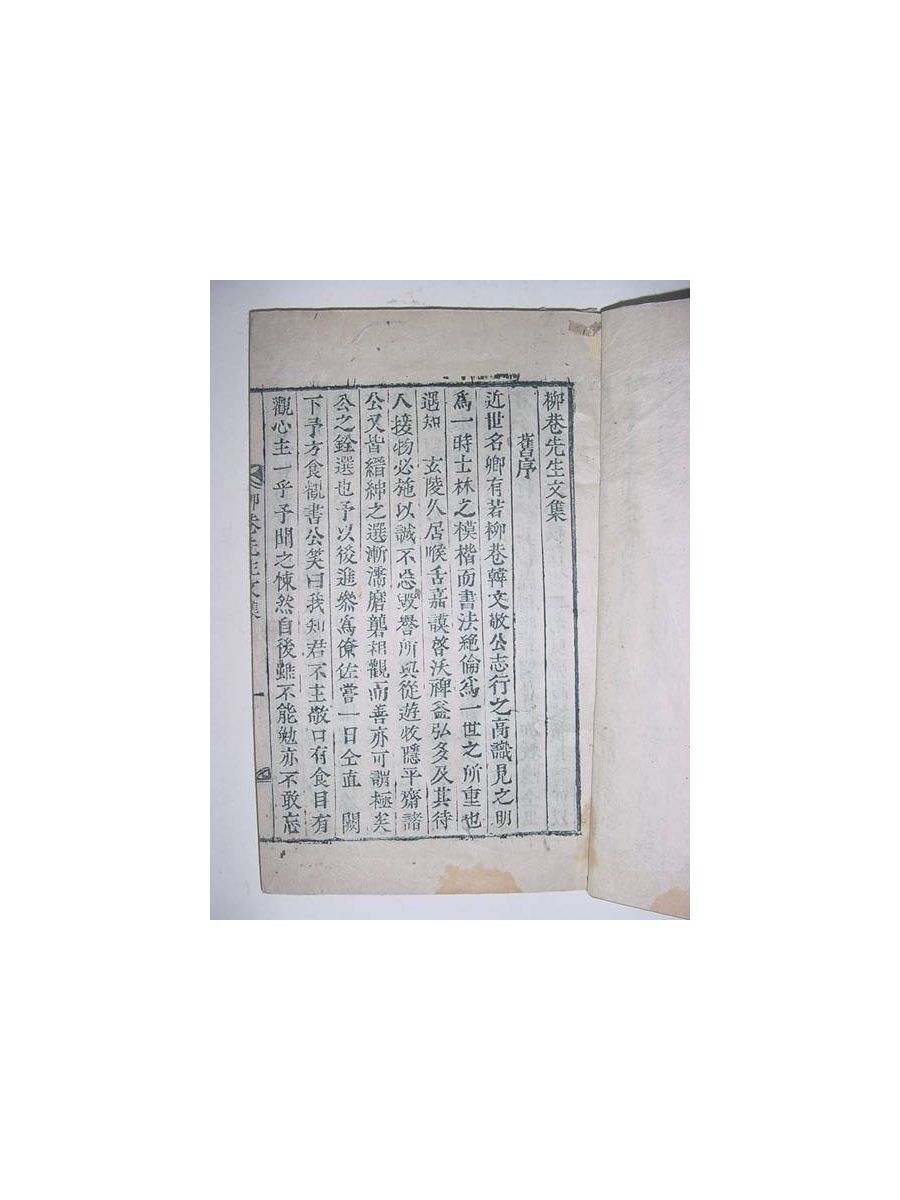 柳巷先生文集
舊序
近世名卿有若柳巷韓文敬公志行之高識見之明
爲一時士林之模楷而書法絕倫爲一世之所重也
遇知 玄陵久居喉舌嘉謨啓沃裨益弘多及其待
人接物必施以誠不忌毁譽所與從遊牧隱平齋諸
公又皆縉紳之選漸濡磨礱相觀而善亦可謂極矣
公之銓選也予以後進叅爲僚佐嘗一日仝直 闕
下予方食觀書公笑曰我知君不主敬口有食目有
觀心主一乎予聞之悚然自後雖不能勉亦不敢忘
柳巷先生文集 一